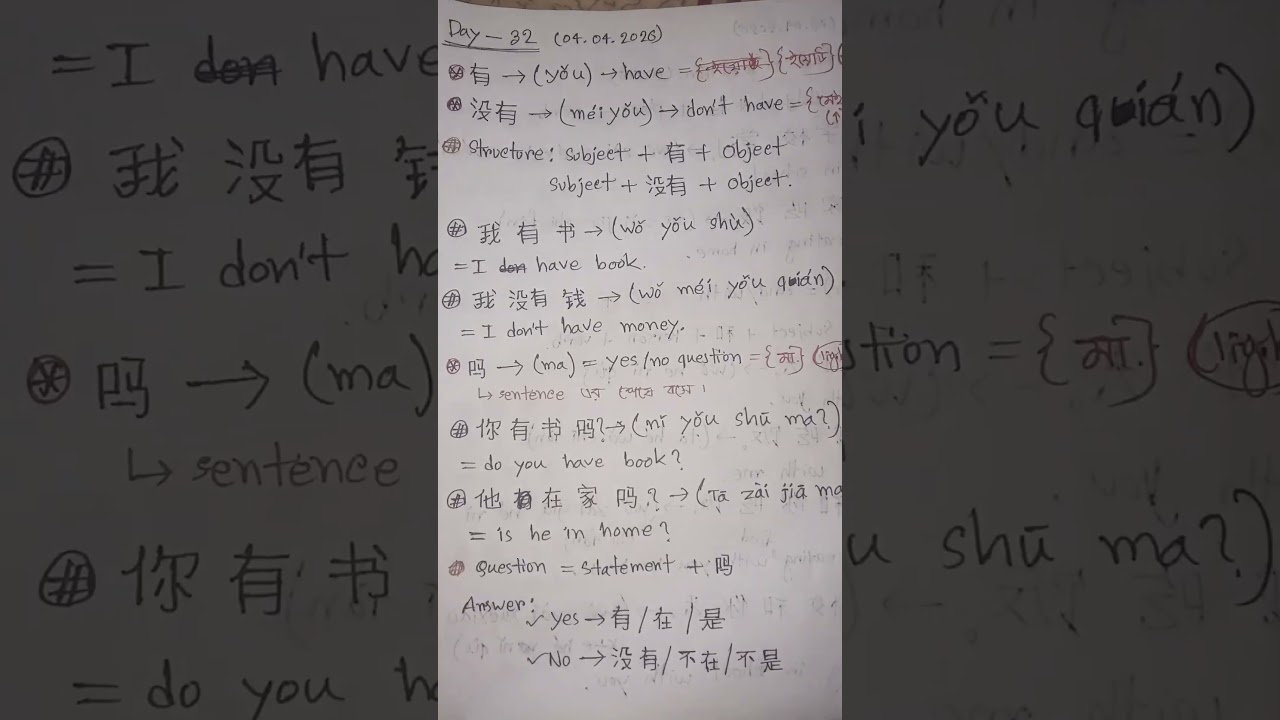 Day - 32 (04.04.2026)
有 → (yǒu) → have =
没有 → (méi yǒu) → don't have =
Structure: Subject + 有 + Object
Subject + 没有 + Object.
我 有 书 → (wǒ yǒu shù)
= I have book.
我 没有 钱 → (wǒ méi yǒu quián)
= I don't have money.
吗 → (ma) = yes/no question = {মা}
↳ sentence এর শেষে বসে।
你 有 书 吗? → (nǐ yǒu shū má?)
= do you have book?
他 在 家 吗? → (Tā zài jiā ma
= is he in home?
Question = Statement + 吗
Answer:
✓ yes → 有/在/是
✓ No → 没有/不在/不是